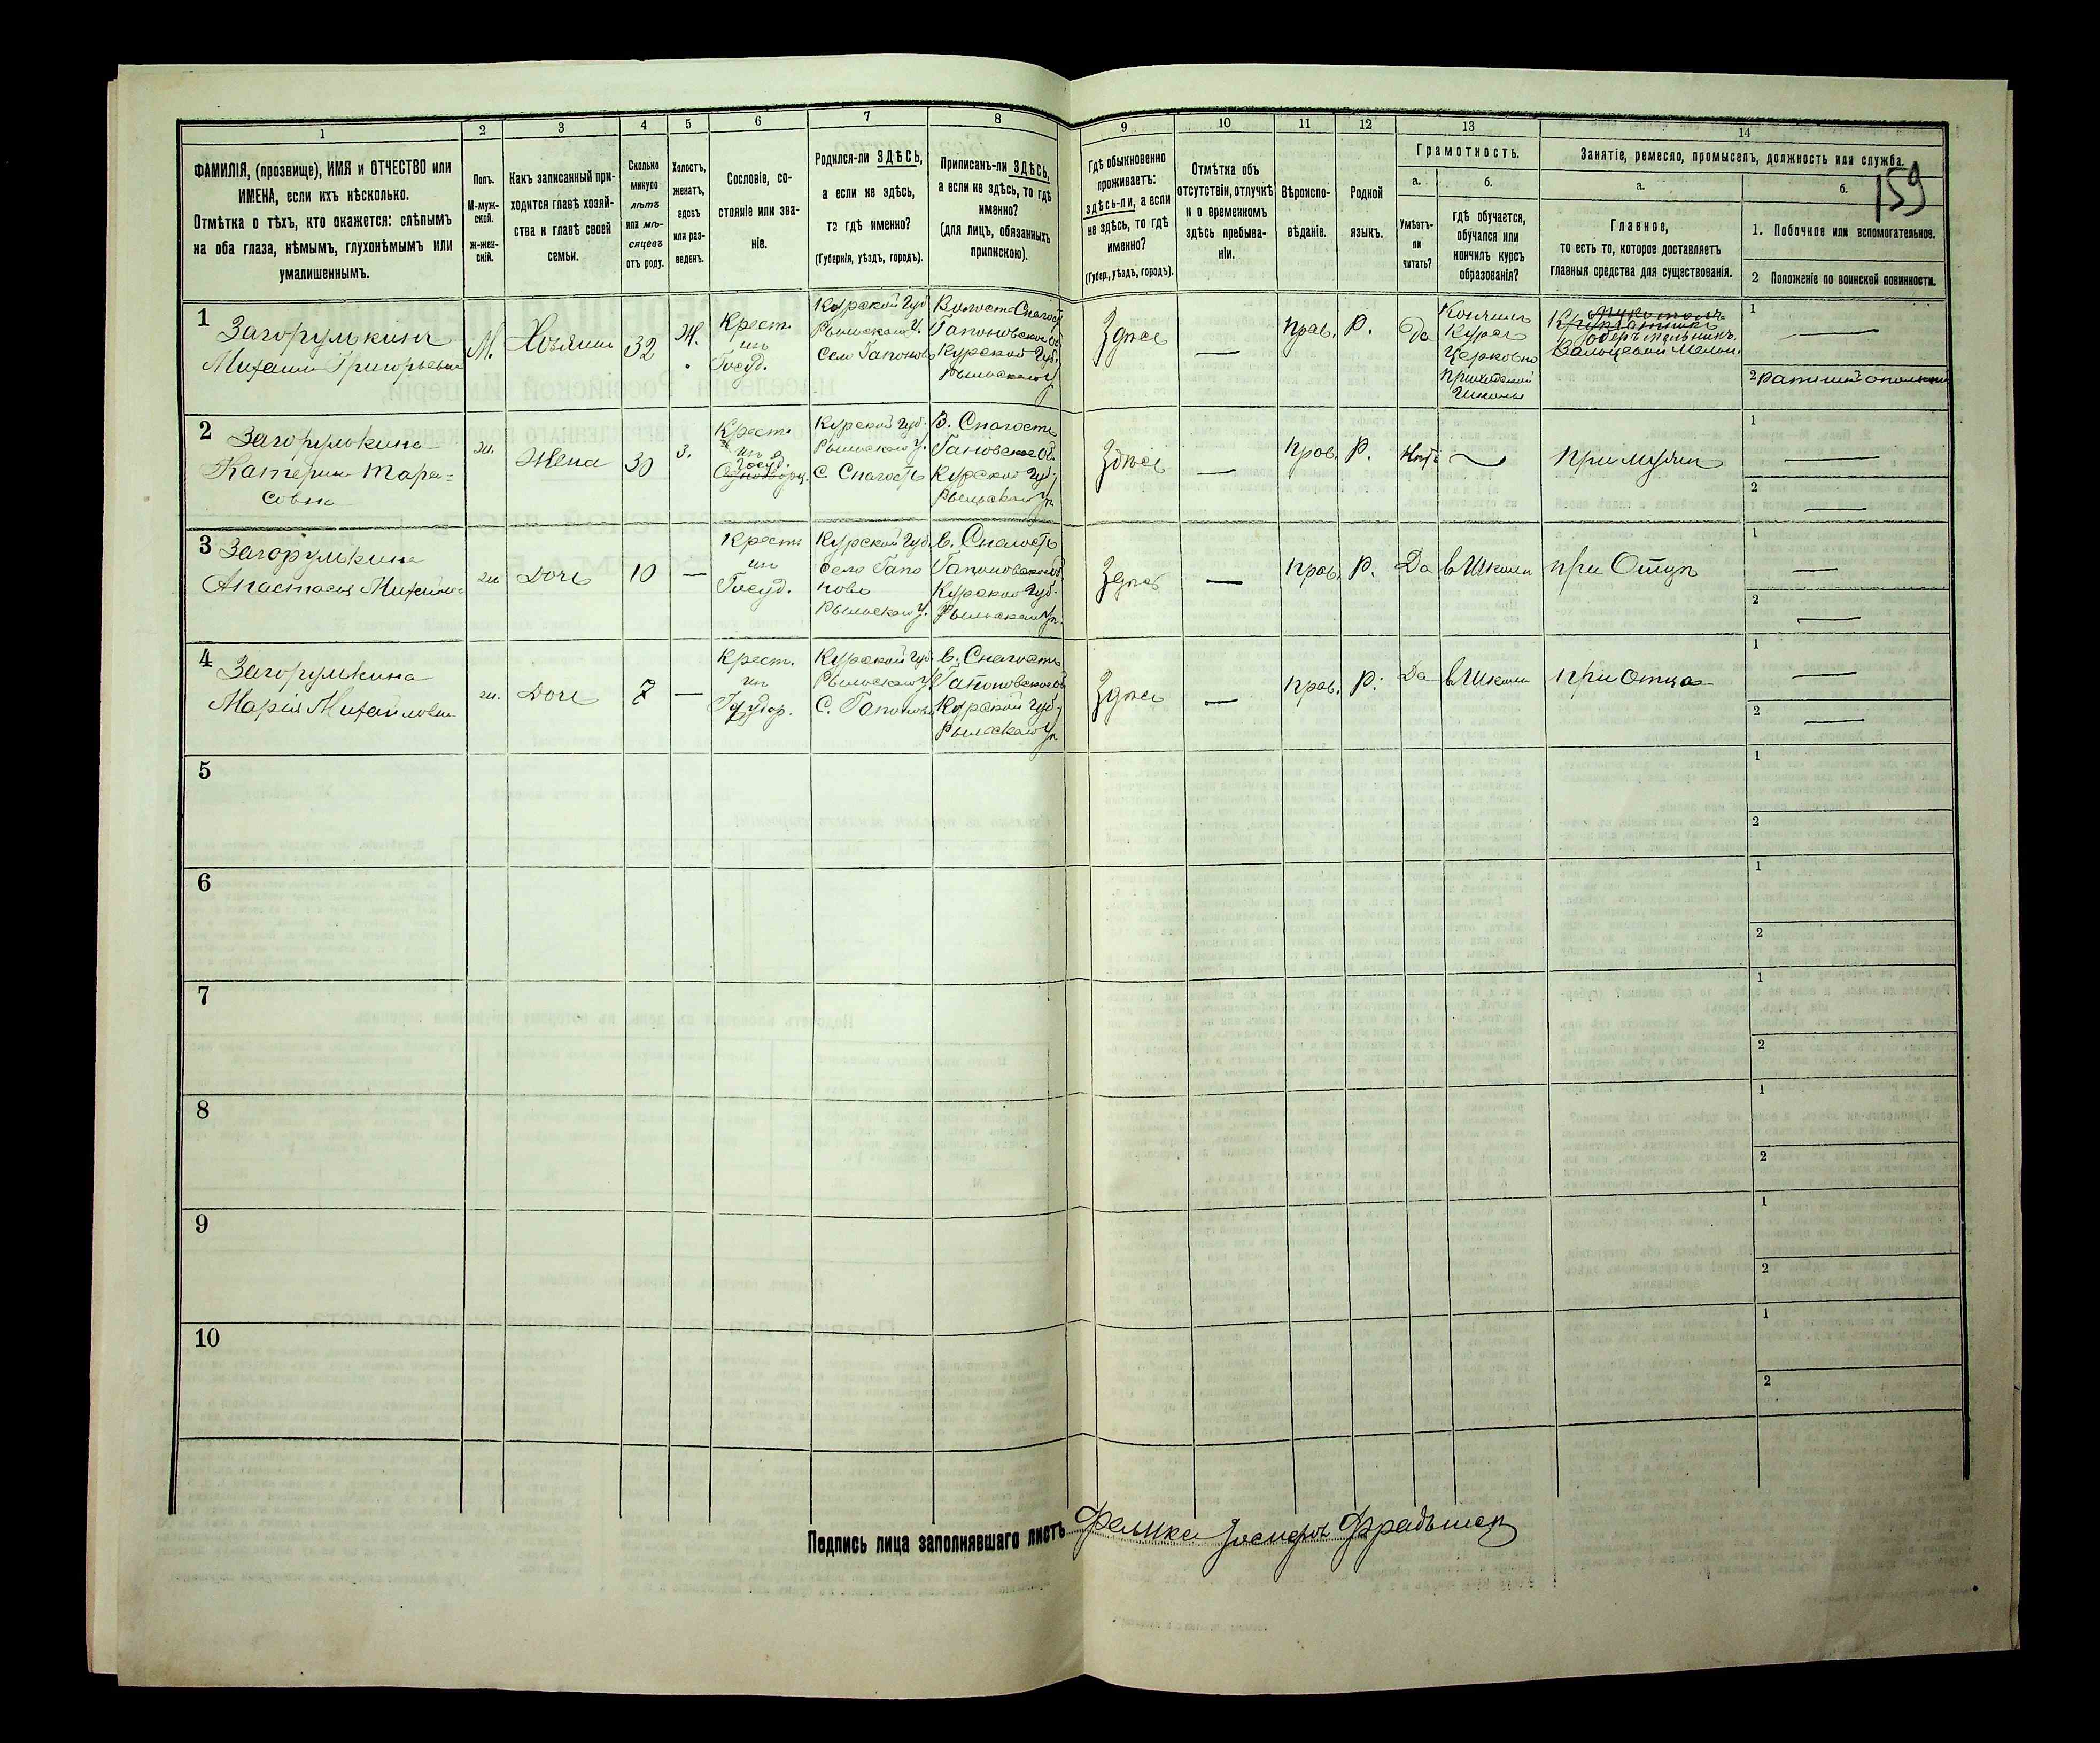 1 2 3 4 5 6 7 8 9 10 11 12 13 14
159
ФАМИЛІЯ, (прозвище), ИМЯ и ОТЧЕСТВО или
ИМЕНА, если ихъ нѣсколько.
Отмѣтка о тѣхъ, кто окажется: слѣпымъ
на оба глаза, нѣмымъ, глухонѣмымъ или
умалишеннымъ.
Полъ.
М-муж-
ской.
Ж-жен-
скій.
Какъ записанный при-
ходится главѣ хозяй-
ства и главѣ своей
семьи.
Сколько
минуло
лѣтъ
или мѣ-
сяцевъ
отъ роду.
Холостъ,
женатъ,
вдовъ
или раз-
веденъ.
Сословіе, со-
стояніе или зва-
ніе.
Родился-ли ЗДѢСЬ,
а если не здѣсь,
то гдѣ именно?
(Губернія, уѣздъ, городъ).
Приписанъ-ли ЗДѢСЬ,
а если не здѣсь, то гдѣ
именно?
(для лицъ, обязанныхъ
припискою).
Гдѣ обыкновенно
проживаетъ:
здѣсь-ли, а если
не здѣсь, то гдѣ
именно?
(Губер., уѣздъ, городъ).
Отмѣтка объ
отсутствіи, отлучкѣ
и о временномъ
здѣсь пребыва-
ніи.
Вѣроиспо-
вѣданіе.
Родной
языкъ.
Грамотность.
а.
Умѣетъ-
ли
читать?
б.
гдѣ обучается,
обучался или
кончилъ курсъ
образованія?
Занятіе, ремесло, промыселъ, должность или служба.
а.
Главное,
то есть то, которое доставляетъ
главныя средства для существованія.
б.
1. Побочное или вспомогательное.
2 Положеніе по воинской повинности.
1
Загорулькинъ
Михаилъ Григорьевичъ
М.
Хозяинъ
32
Ж.
Крест.
изъ
Госуд.
Курской Губ.
Рыльскаго У.
Село Гапоново
Волост. Снагость
Гапоновское Об.
Курской Губ.
Рыльскаго У
Здѣсь
—
прав.
Р.
Да
Кончилъ
Курсъ
Церковно
приходской
Школы
Оберъ Мельникъ
Вальцевой Мельн.
1 —
2 Ратникъ ополченія
2
Загорулькина
Катерина Тара=
совна
Жена
30
З.
Крест.
изъ
Госуд.
Курской Губ.
Рыльскаго У.
С. Снагость
В. Снагость
Курской Губ.
Рыльскаго У
Здѣсь
—
прав.
Р.
Нѣтъ
при мужѣ
1 —
2 —
3
Загорулькина
Анастасья Михайлов
Дочь
10
—
Крест.
изъ
Госуд.
Курской Губ.
село Гапо
ново
Рыльскаго У.
в. Снагость
Гапоновское Об
Курской Губ.
Рыльскаго У.
Здѣсь
—
прав.
Р.
Да
въ Школѣ
при Отцѣ
1 —
2 —
4
Загорулькина
Марія Михайловна
Дочь
7
—
Крест.
изъ
Курской Губ.
Рыльскаго У.
С. Гапоново
в. Снагость
Гапоновское Об
Курской Губ.
Рыльскаго У
Здѣсь
—
прав.
Р.
Да
въ Школѣ
при Отца
1 —
2 —
5
1
2
6
1
2
7
1
2
8
1
2
9
1
2
10
1
2
Подпись лица заполнявшаго листъ